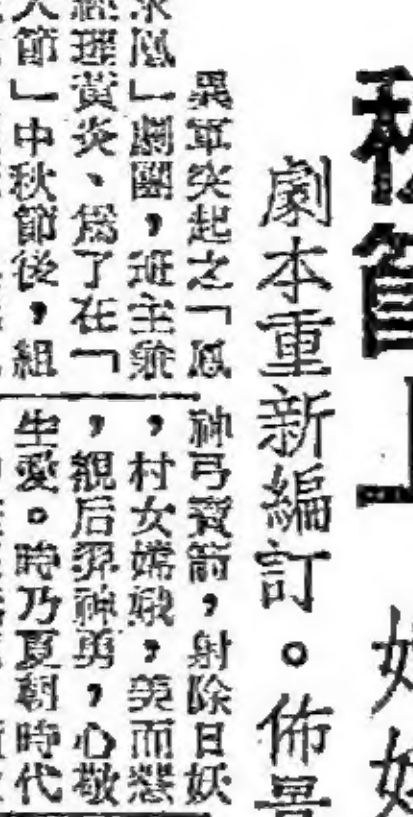 劇本重新編訂。佈景
異軍突起之「鳳
求凰」劇團，班主兼
經理黃炎、爲了在「
人節」中秋節後，組
神弓寶箭，射除日妖
，村女嫦娥，美而慧
，覩后羿神勇，心敬
生愛。時乃夏朝時代